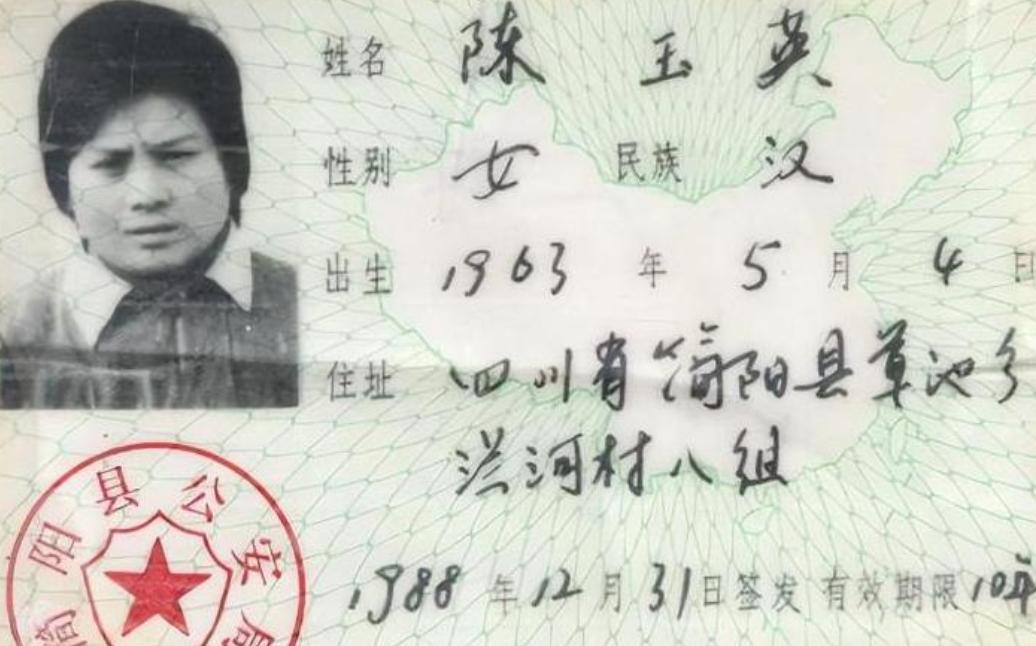 姓名 陈玉英
性别 女 民族 汉
出生 1963年5月4日
住址 四川省简阳县草池乡
洪河村八组
1988年12月31日签发 有效期限10年
简阳县公安局